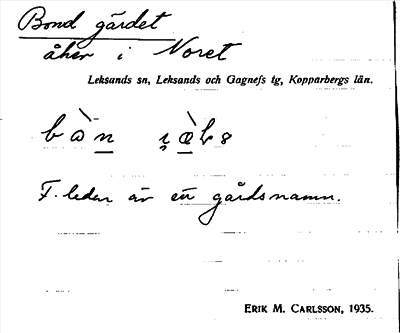 Bond gärdet
åker i Noret
Leksands sn, Leksands och Gagnefs tg, Kopparbergs län.
F. leden är ett gårdsnamn.
ERIK M. CARLSSON, 1935.